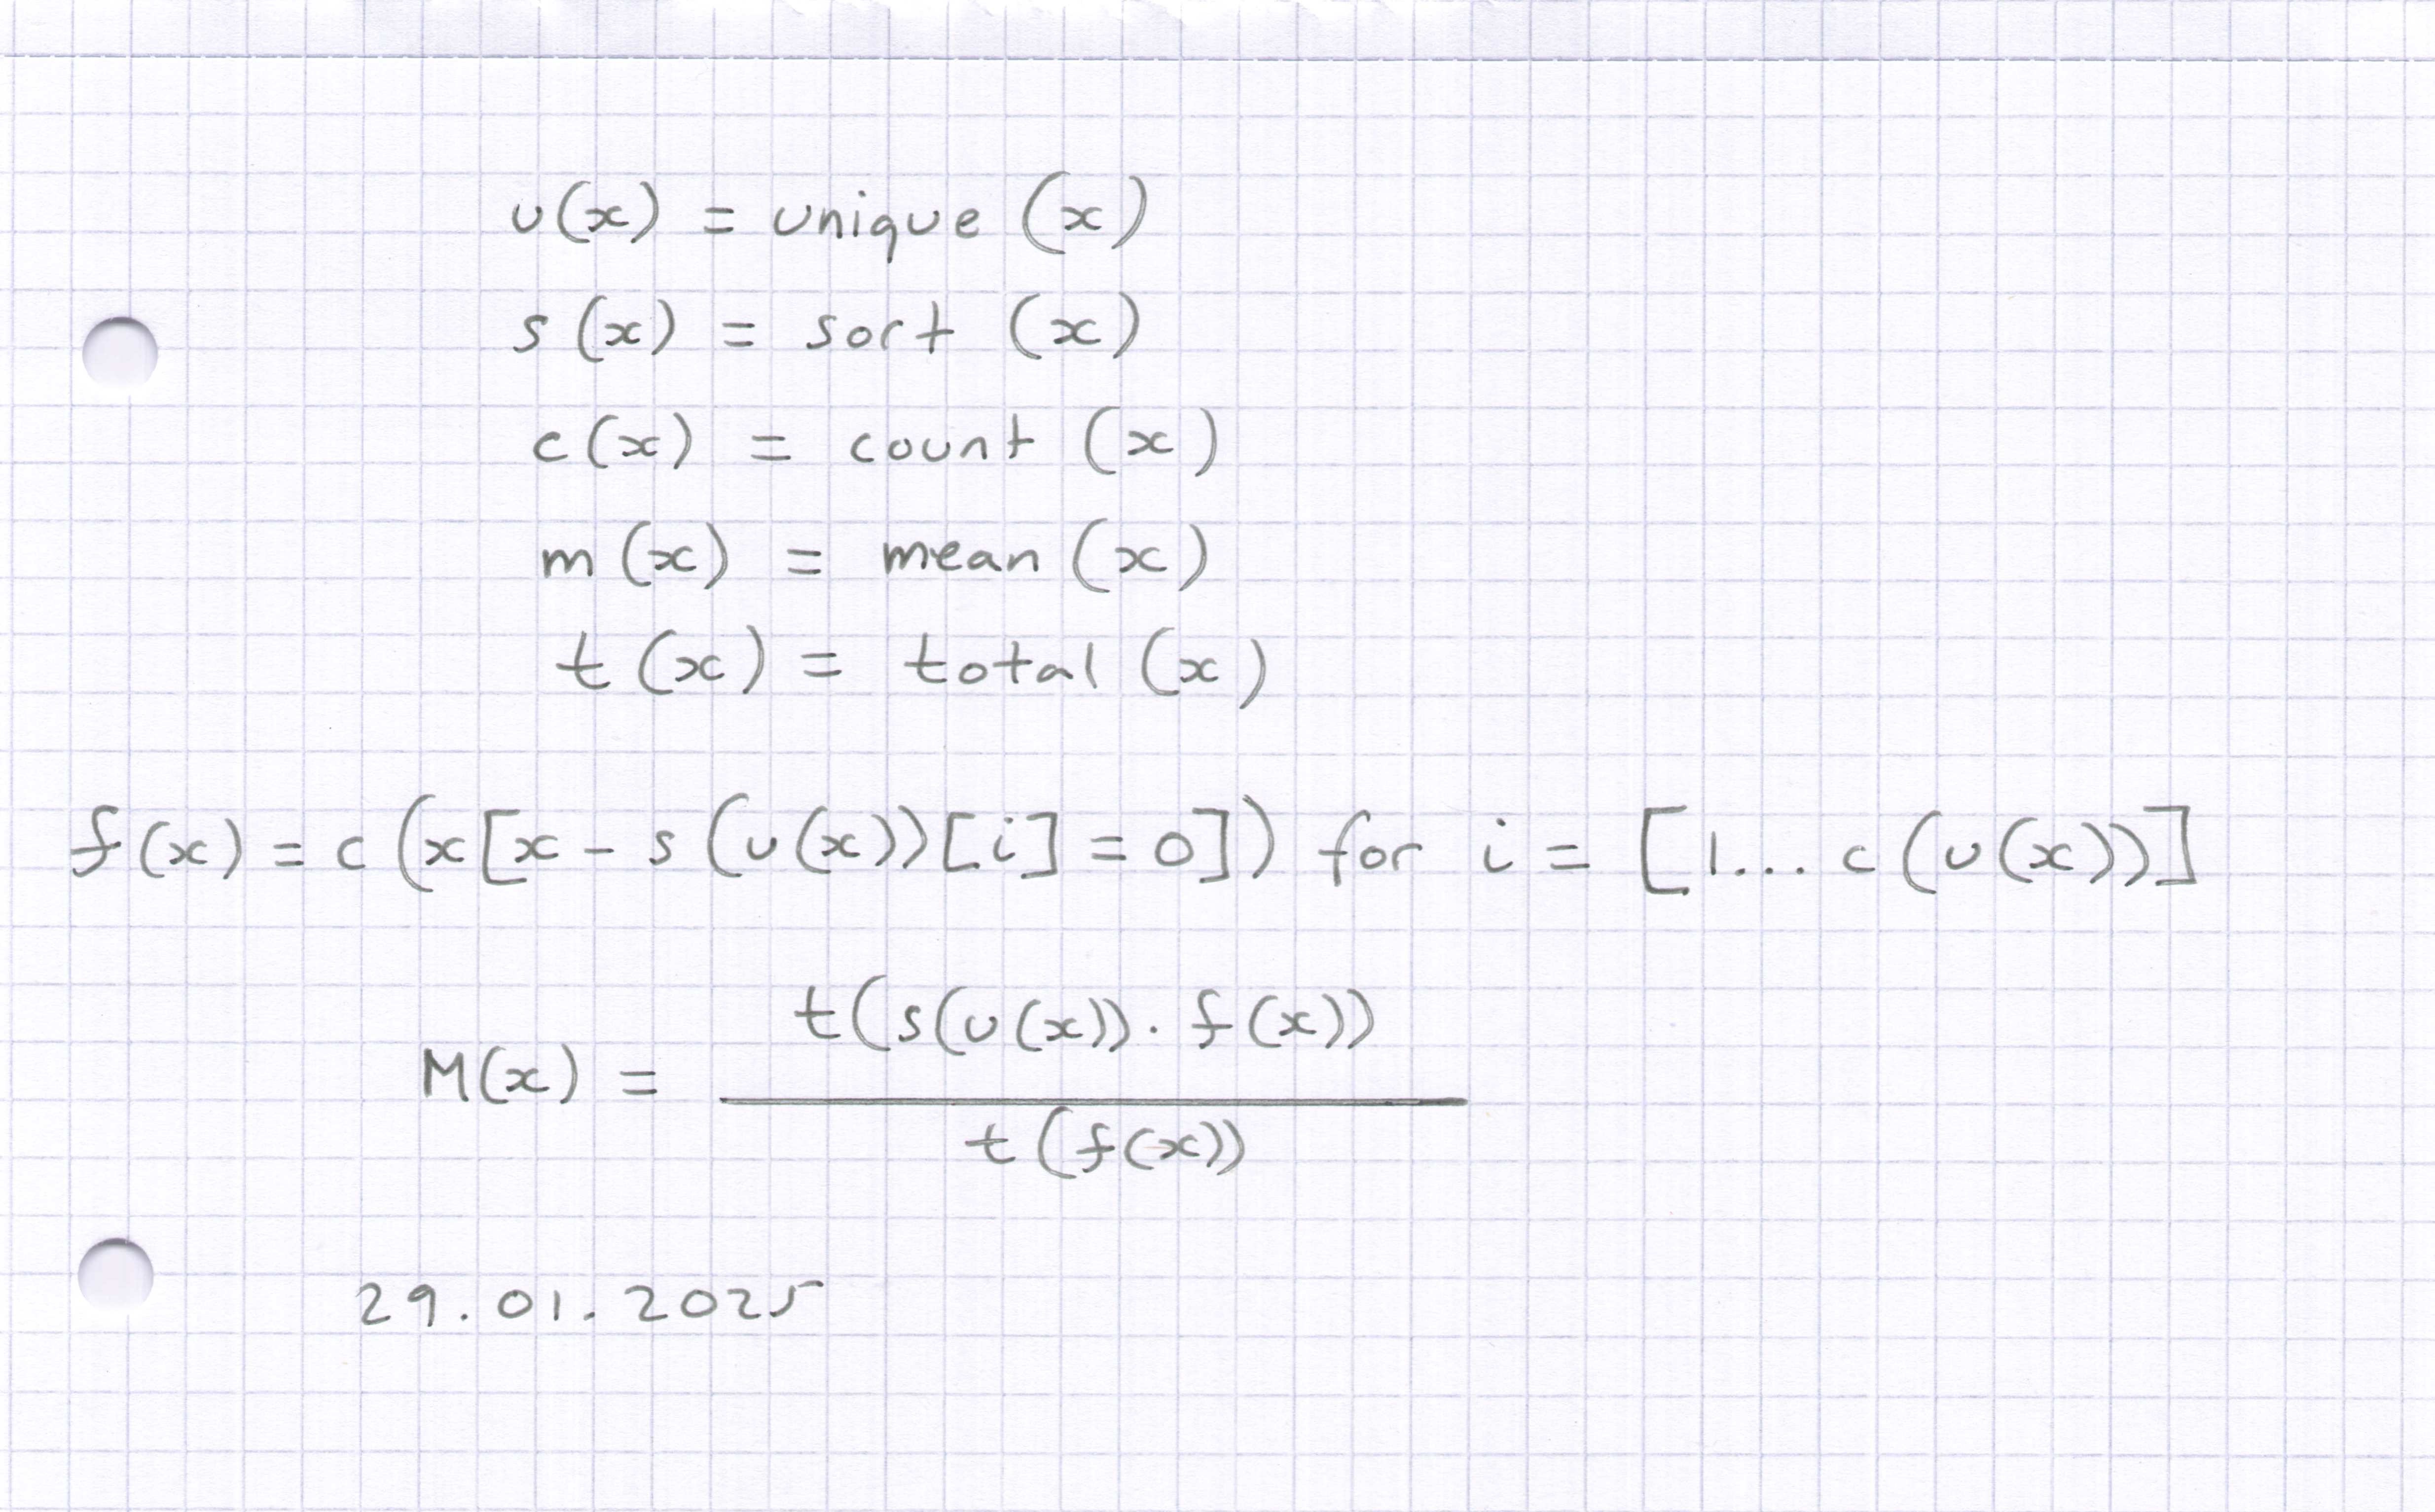 u(x) = unique (x)
s(x) = sort (x)
c(x) = count (x)
m(x) = mean (x)
t(x) = total (x)
f(x) = c(x[x - s(u(x))[i] = 0]) for i = [1... c(u(x))]
t(s(u(x)) · f(x))
M(x) =
t(f(x))
29.01.2025